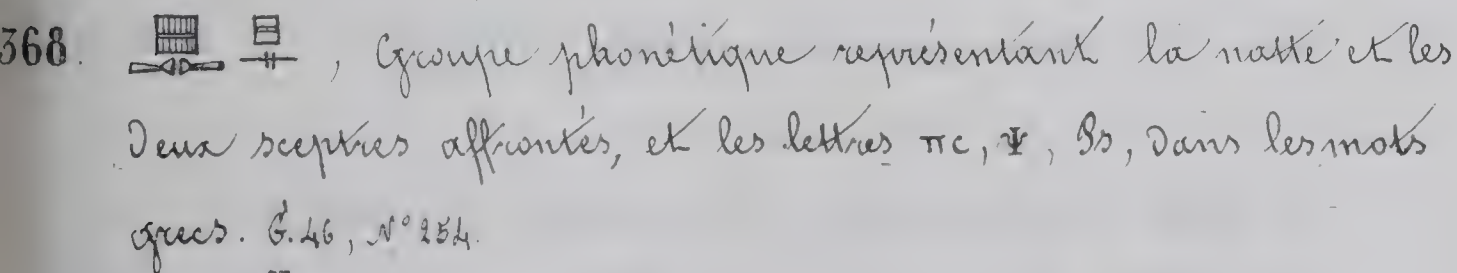 368. 𓊪𓊃 𓊪𓊃, Groupe phonétique représentant la natte et les
Deux sceptres affrontés, et les lettres ⲡⲥ, Ψ, Ps, dans les mots
grecs. G. 46, N° 254.